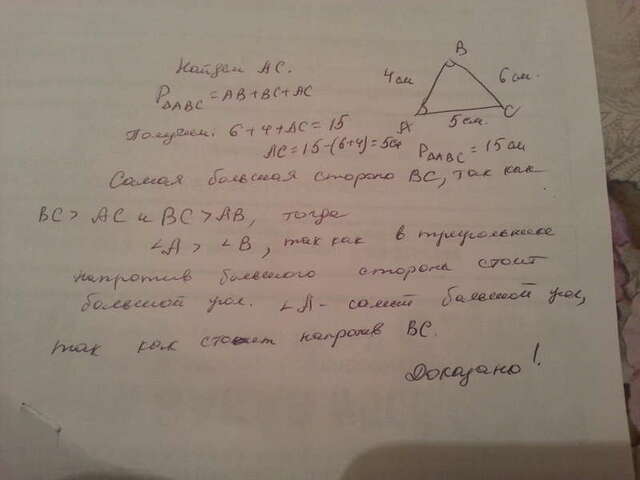 Найдем AC.
P△ABC = AB+BC+AC
Получаем: 6+4+AC=15
AC=15-(6+4)=5см
B
4см
6см.
A
C
5см.
P△ABC = 15см
Самая большая сторона BC, так как
BC > AC и BC > AB, тогда
∠A > ∠B, так как в треугольнике
напротив большого сторона стоит
большой угол. ∠A - самый большой угол,
так как стоит напротив BC.
Доказано!